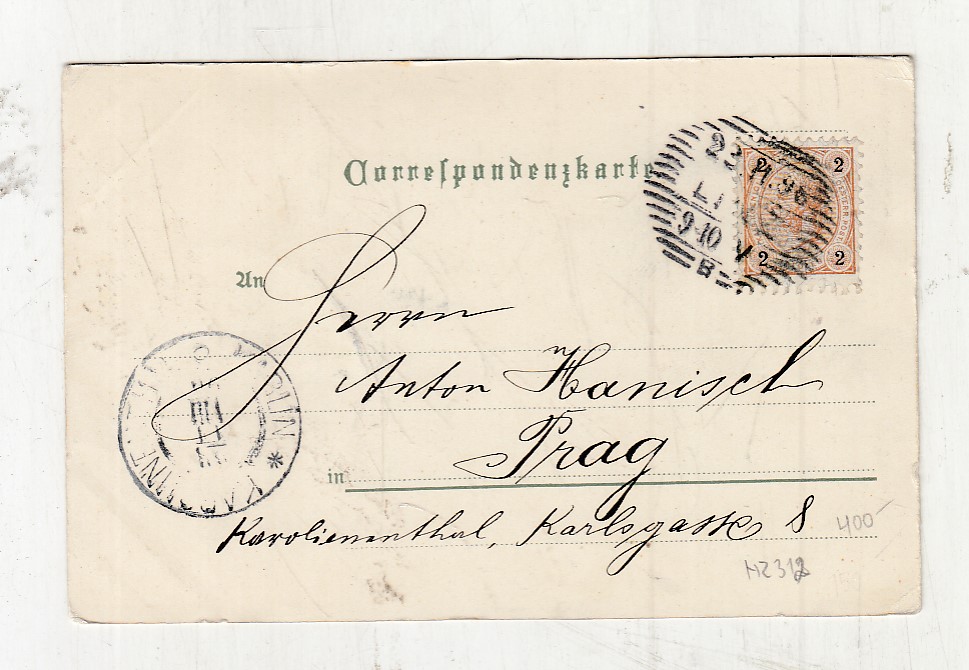 Correspondenzkarte
2 2
2 2
9-10 V
B
An
Herrn
Anton Hanisch
in Prag
KAROLINENTHAL
KARLIN *
Karolienenthal, Karlsgasse 8
400-